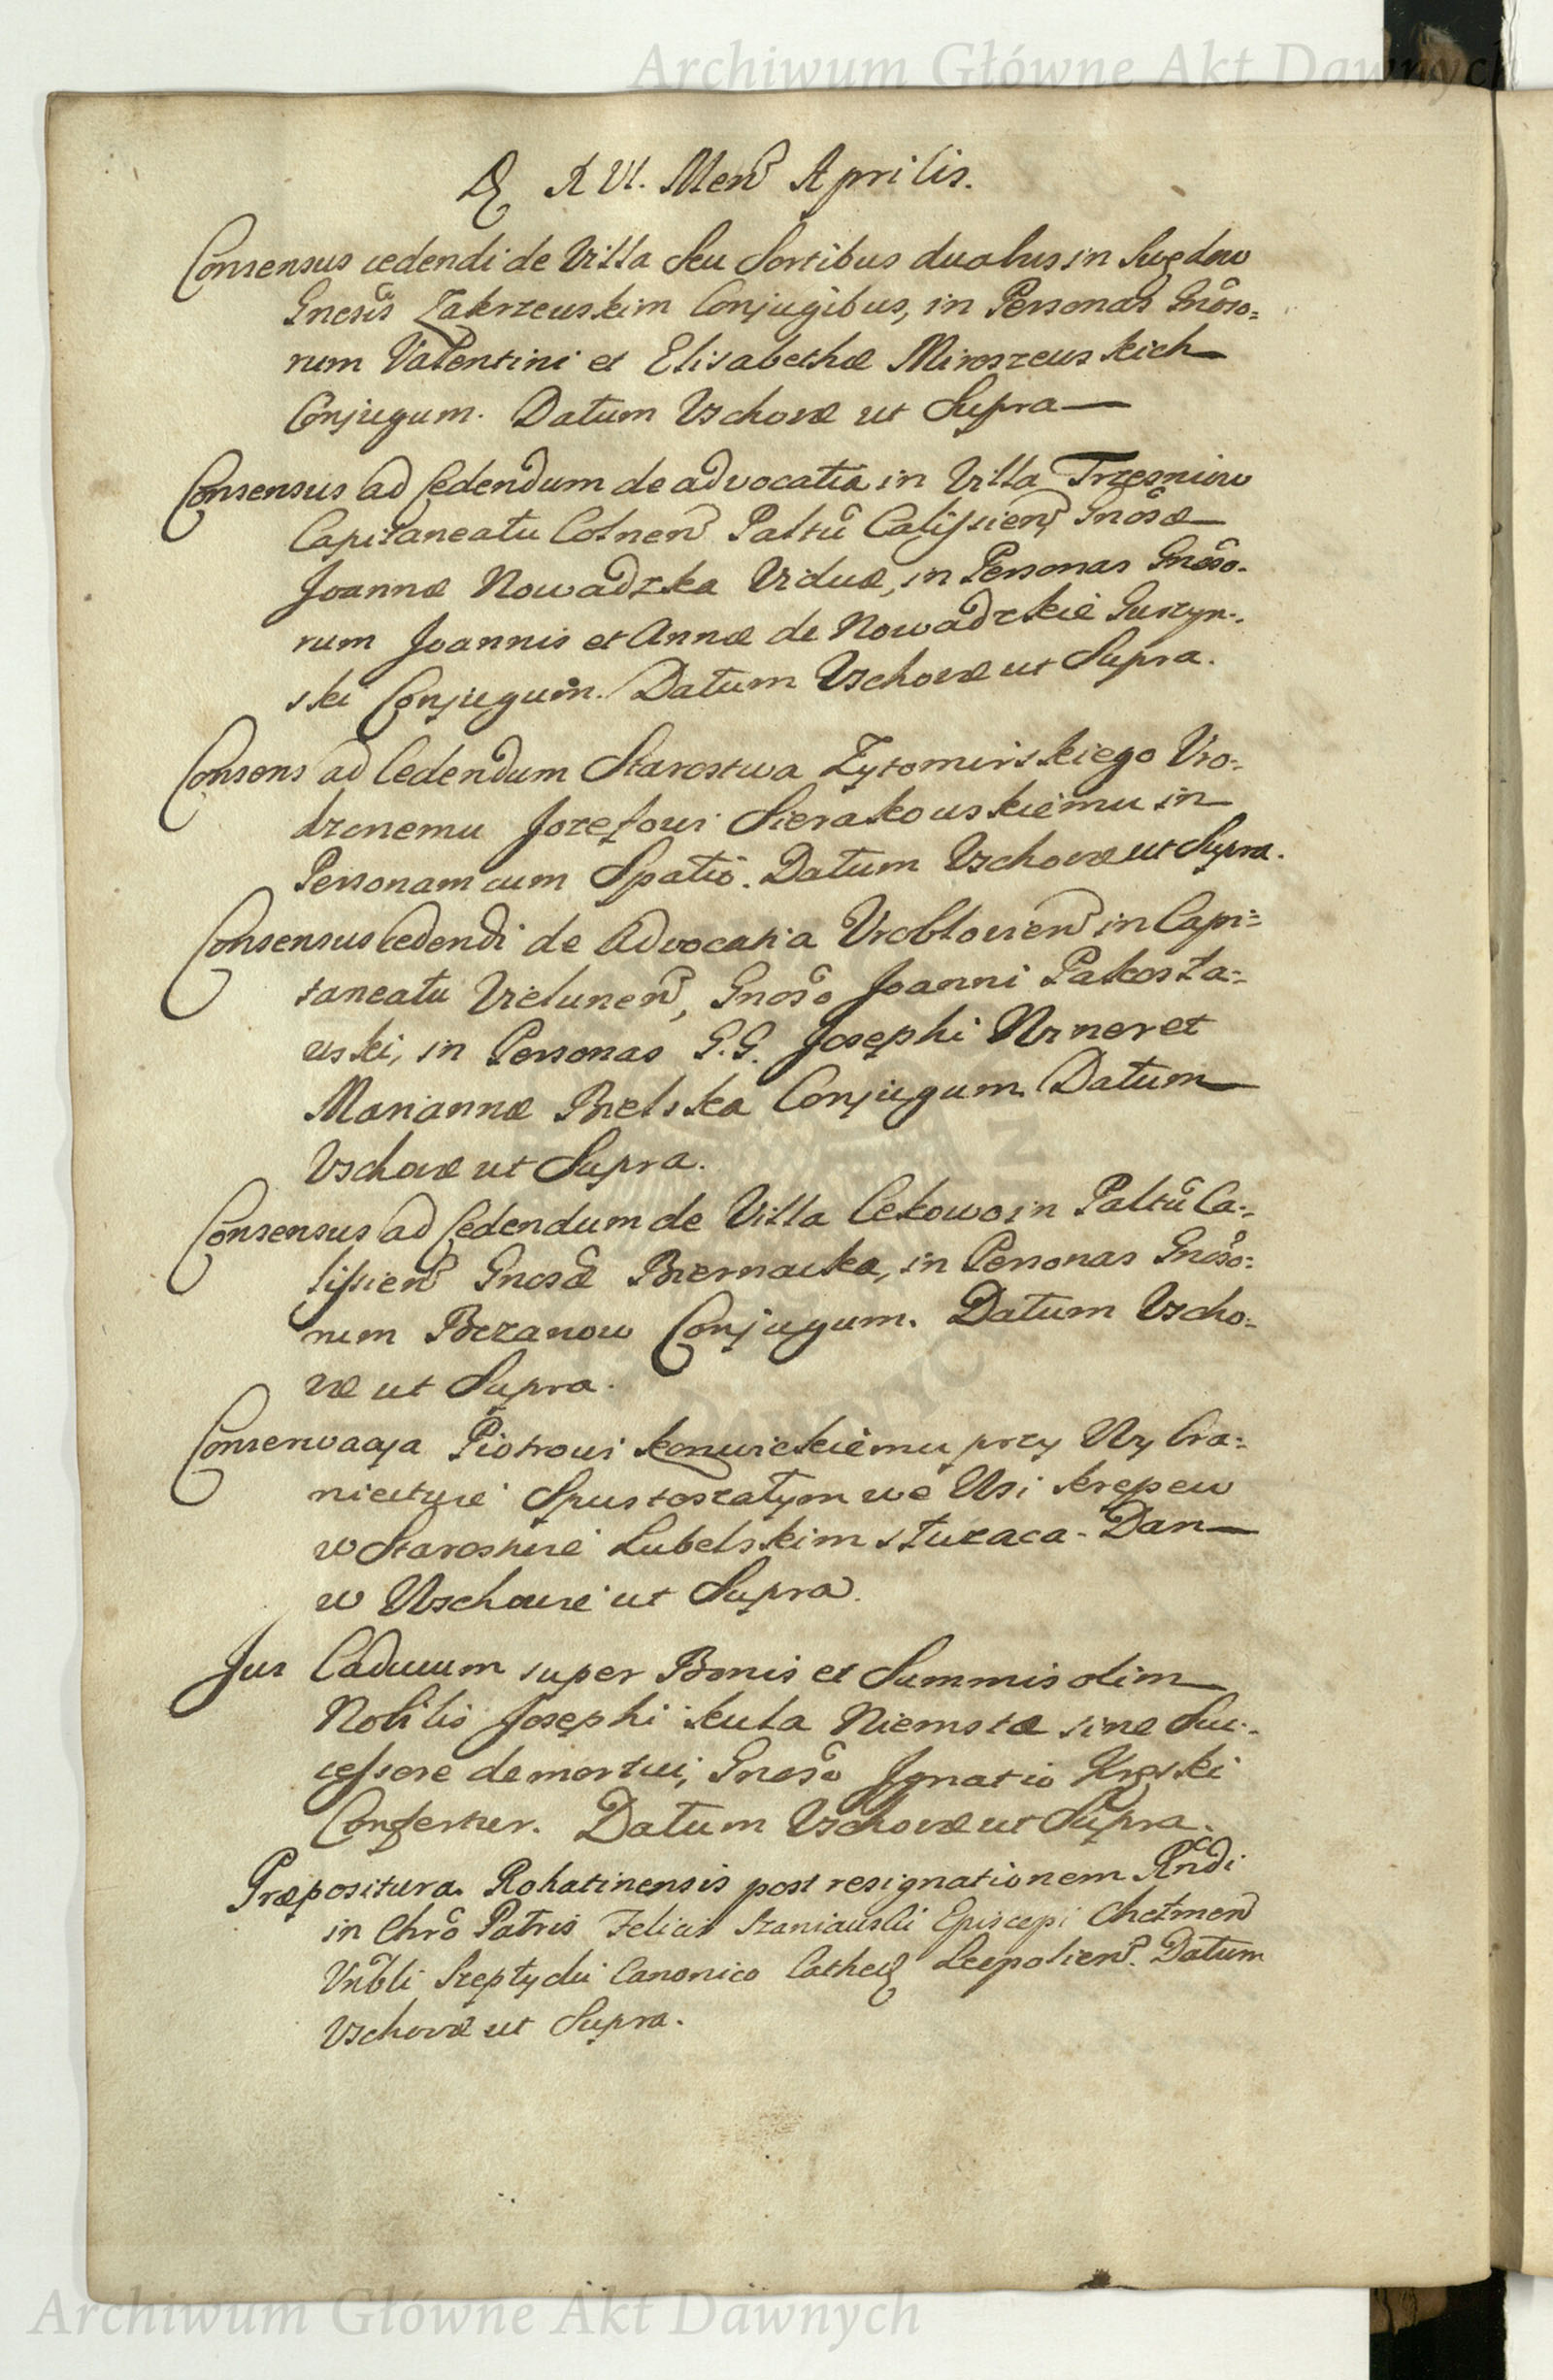 Archiwum Główne Akt Dawnych
XVI. Menß Aprilis.
Consensus cedendi de Villa seu Sortibus duabus in
Gnosis Zakrzewskim Conjugibus, in Personas Gnoso=
rum Valentini et Elisabethæ Miroszewskich
Conjugum. Datum Vschovæ ut Supra
Consensus ad Cedendum de advocatia in Villa Trzesniow
Capitaneatu Colnen Paltu Calissien Gnosæ
Joannæ Nowadzka Viduæ, in Personas Gnoso-
rum Joannis et Annæ de Nowadzkie Gurzyn-
ski Conjugum. Datum Vschovæ ut Supra.
Consens ad Cedendum Starostwa Zytomirskiego Vro-
dzonemu Jozefowi Sierakowskiemu in
Personam cum Spatio. Datum Vschovæ ut Supra.
Consensus Cedendi de Advocatia Vroblovien in Capi=
taneatu Vielunen, Gnoso Joanni Pakosła=
wski, in Personas G.G. Josephi et
Mariannæ Bielska Conjugum. Datum
Vschovæ ut Supra.
Consensus ad Cedendum de Villa Cekowo in Paltu Ca-
lissien Gnosæ Biernacka, in Personas Gnoso=
rum Conjugum. Datum Vscho-
væ ut Supra.
Conserwacya Piotrowi Konwickiemu przy Wybra-
niectwie Spustoszałym we Wsi Krepcu
w Starostwie Lubelskim służąca. Dan
w Wschowie ut Supra.
Jus Caducum super Bonis et Summis olim
Nobilis Josephi Kula Niemstæ sine Suc-
cessore demortui, Gnoso Ignatio Kęski
Confertur. Datum Vschovæ ut Supra.
Præpositura Rohatinensis post resignationem Rndi
in Chro Patris Felicis Szaniawski Episcopi Chełmen
Vnbli Szeptycki Canonico Cathed Leopolien. Datum
Vschovæ ut Supra.
Archiwum Główne Akt Dawnych